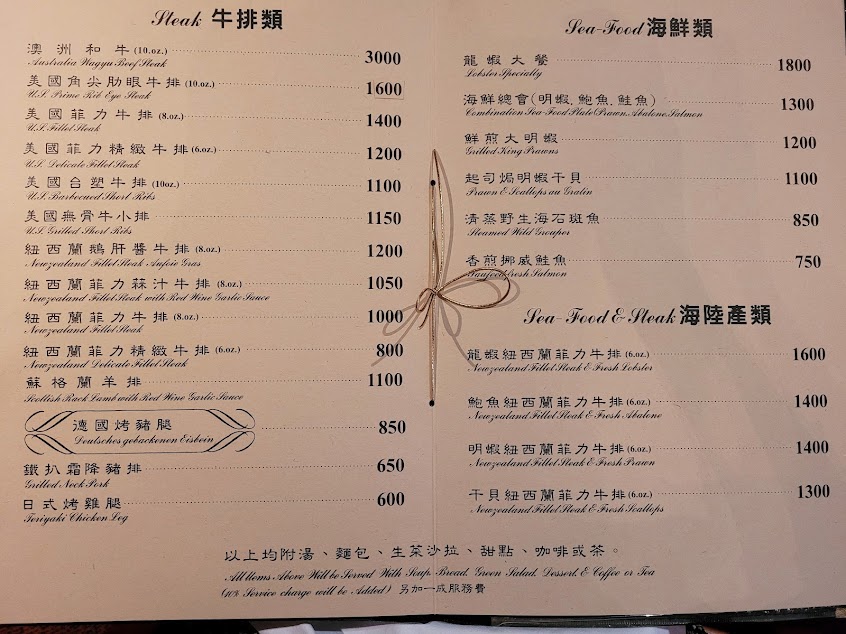 Steak 牛排類
澳洲和牛(10.oz.) 3000
Australia Wagyu Beef Steak
美國角尖肋眼牛排(10.oz.) 1600
U.S. Prime Rib Eye Steak
美國菲力牛排(8.oz.) 1400
U.S. Fillet Steak
美國菲力精緻牛排(6.oz.) 1200
U.S. Delicate Fillet Steak
美國台塑牛排(10oz.) 1100
U.S. Barbecued Short Ribs
美國無骨牛小排 1150
U.S. Grilled Short Ribs
紐西蘭鵝肝醬牛排(8.oz.) 1200
Newzealand Fillet Steak Aufoie Gras
紐西蘭菲力蒜汁牛排(8.oz.) 1050
Newzealand Fillet Steak with Red Wine Garlic Sauce
紐西蘭菲力牛排(8.oz.) 1000
Newzealand Fillet Steak
紐西蘭菲力精緻牛排(6.oz.) 800
Newzealand Delicate Fillet Steak
蘇格蘭羊排 1100
Scottish Rack Lamb with Red Wine Garlic Sauce
德國烤豬腿 850
Deutsches gebackenen Eisbein
鐵扒霜降豬排 650
Grilled Neck Pork
日式烤雞腿 600
Teriyaki Chicken Leg
Sea-Food 海鮮類
龍蝦大餐 1800
Lobster Specialty
海鮮總會(明蝦.鮑魚.鮭魚) 1300
Combination Sea-Food Plate Prawn. Abalone. Salmon
鮮煎大明蝦 1200
Grilled King Prawns
起司焗明蝦干貝 1100
Prawn & Scallops au Gratin
清蒸野生海石斑魚 850
Steamed Wild Grouper
香煎挪威鮭魚 750
fresh Salmon
Sea-Food & Steak 海陸產類
龍蝦紐西蘭菲力牛排(6.oz.) 1600
Newzealand Fillet Steak & Fresh Lobster
鮑魚紐西蘭菲力牛排(6.oz.) 1400
Newzealand Fillet Steak & Fresh Abalone
明蝦紐西蘭菲力牛排(6.oz.) 1400
Newzealand Fillet Steak & Fresh Prawn
干貝紐西蘭菲力牛排(6.oz.) 1300
Newzealand Fillet Steak & Fresh Scallops
以上均附湯、麵包、生菜沙拉、甜點、咖啡或茶。
All Items Above Will be Served With Soup. Bread. Green Salad. Dessert. & Coffee or Tea
(10% Service charge will be Added) 另加一成服務費